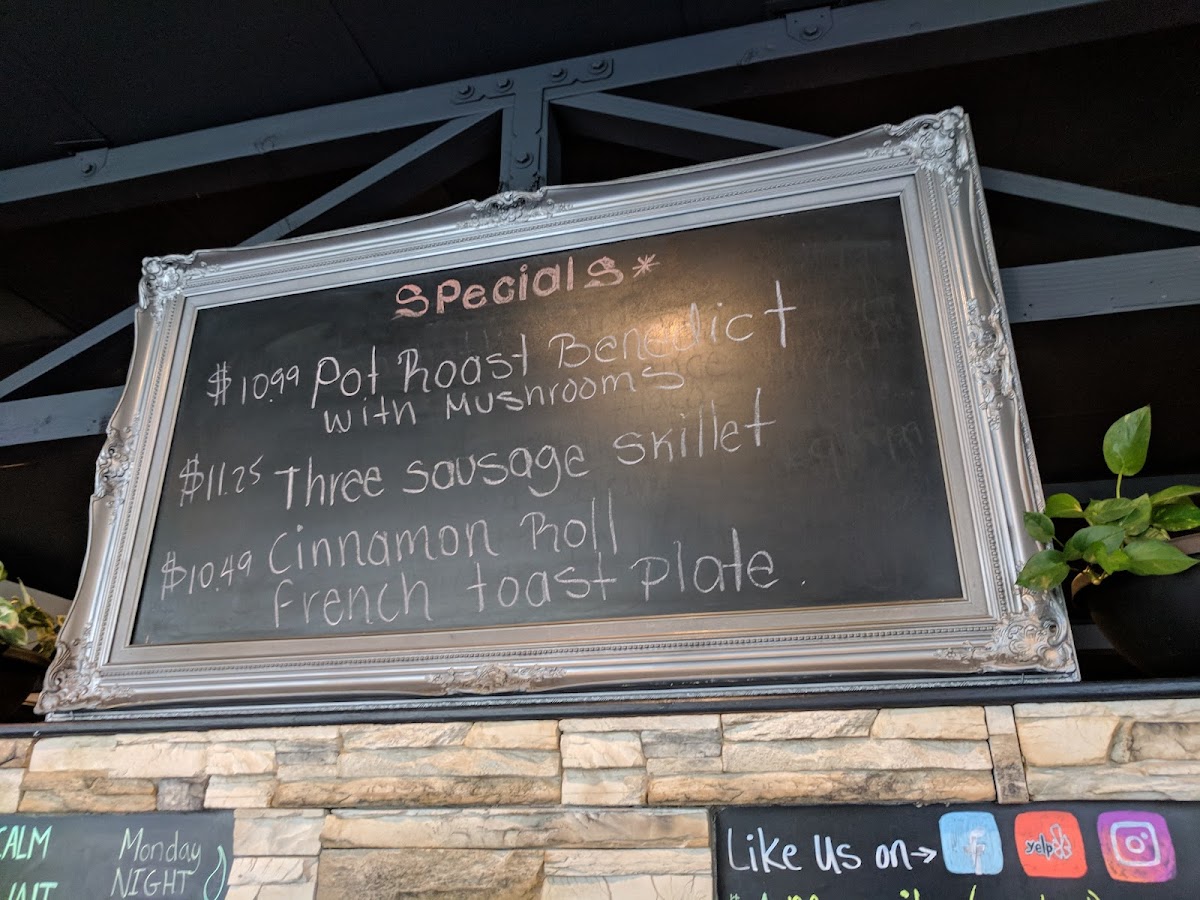 Specials*
$10.99 Pot Roast Benedict
with Mushrooms
$11.25 Three sausage skillet
$10.49 Cinnamon Roll
French toast plate.
CALM
Monday
NIGHT
Like Us on→
f
yelp